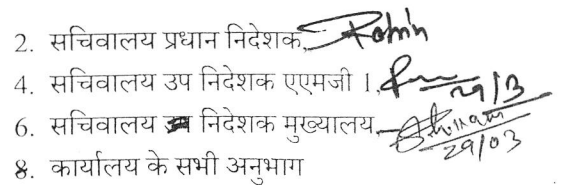 2. सचिवालय प्रधान निदेशक, Rohin
4. सचिवालय उप निदेशक एएमजी I, 29/3
6. सचिवालय निदेशक मुख्यालय 29/03
8. कार्यालय के सभी अनुभाग